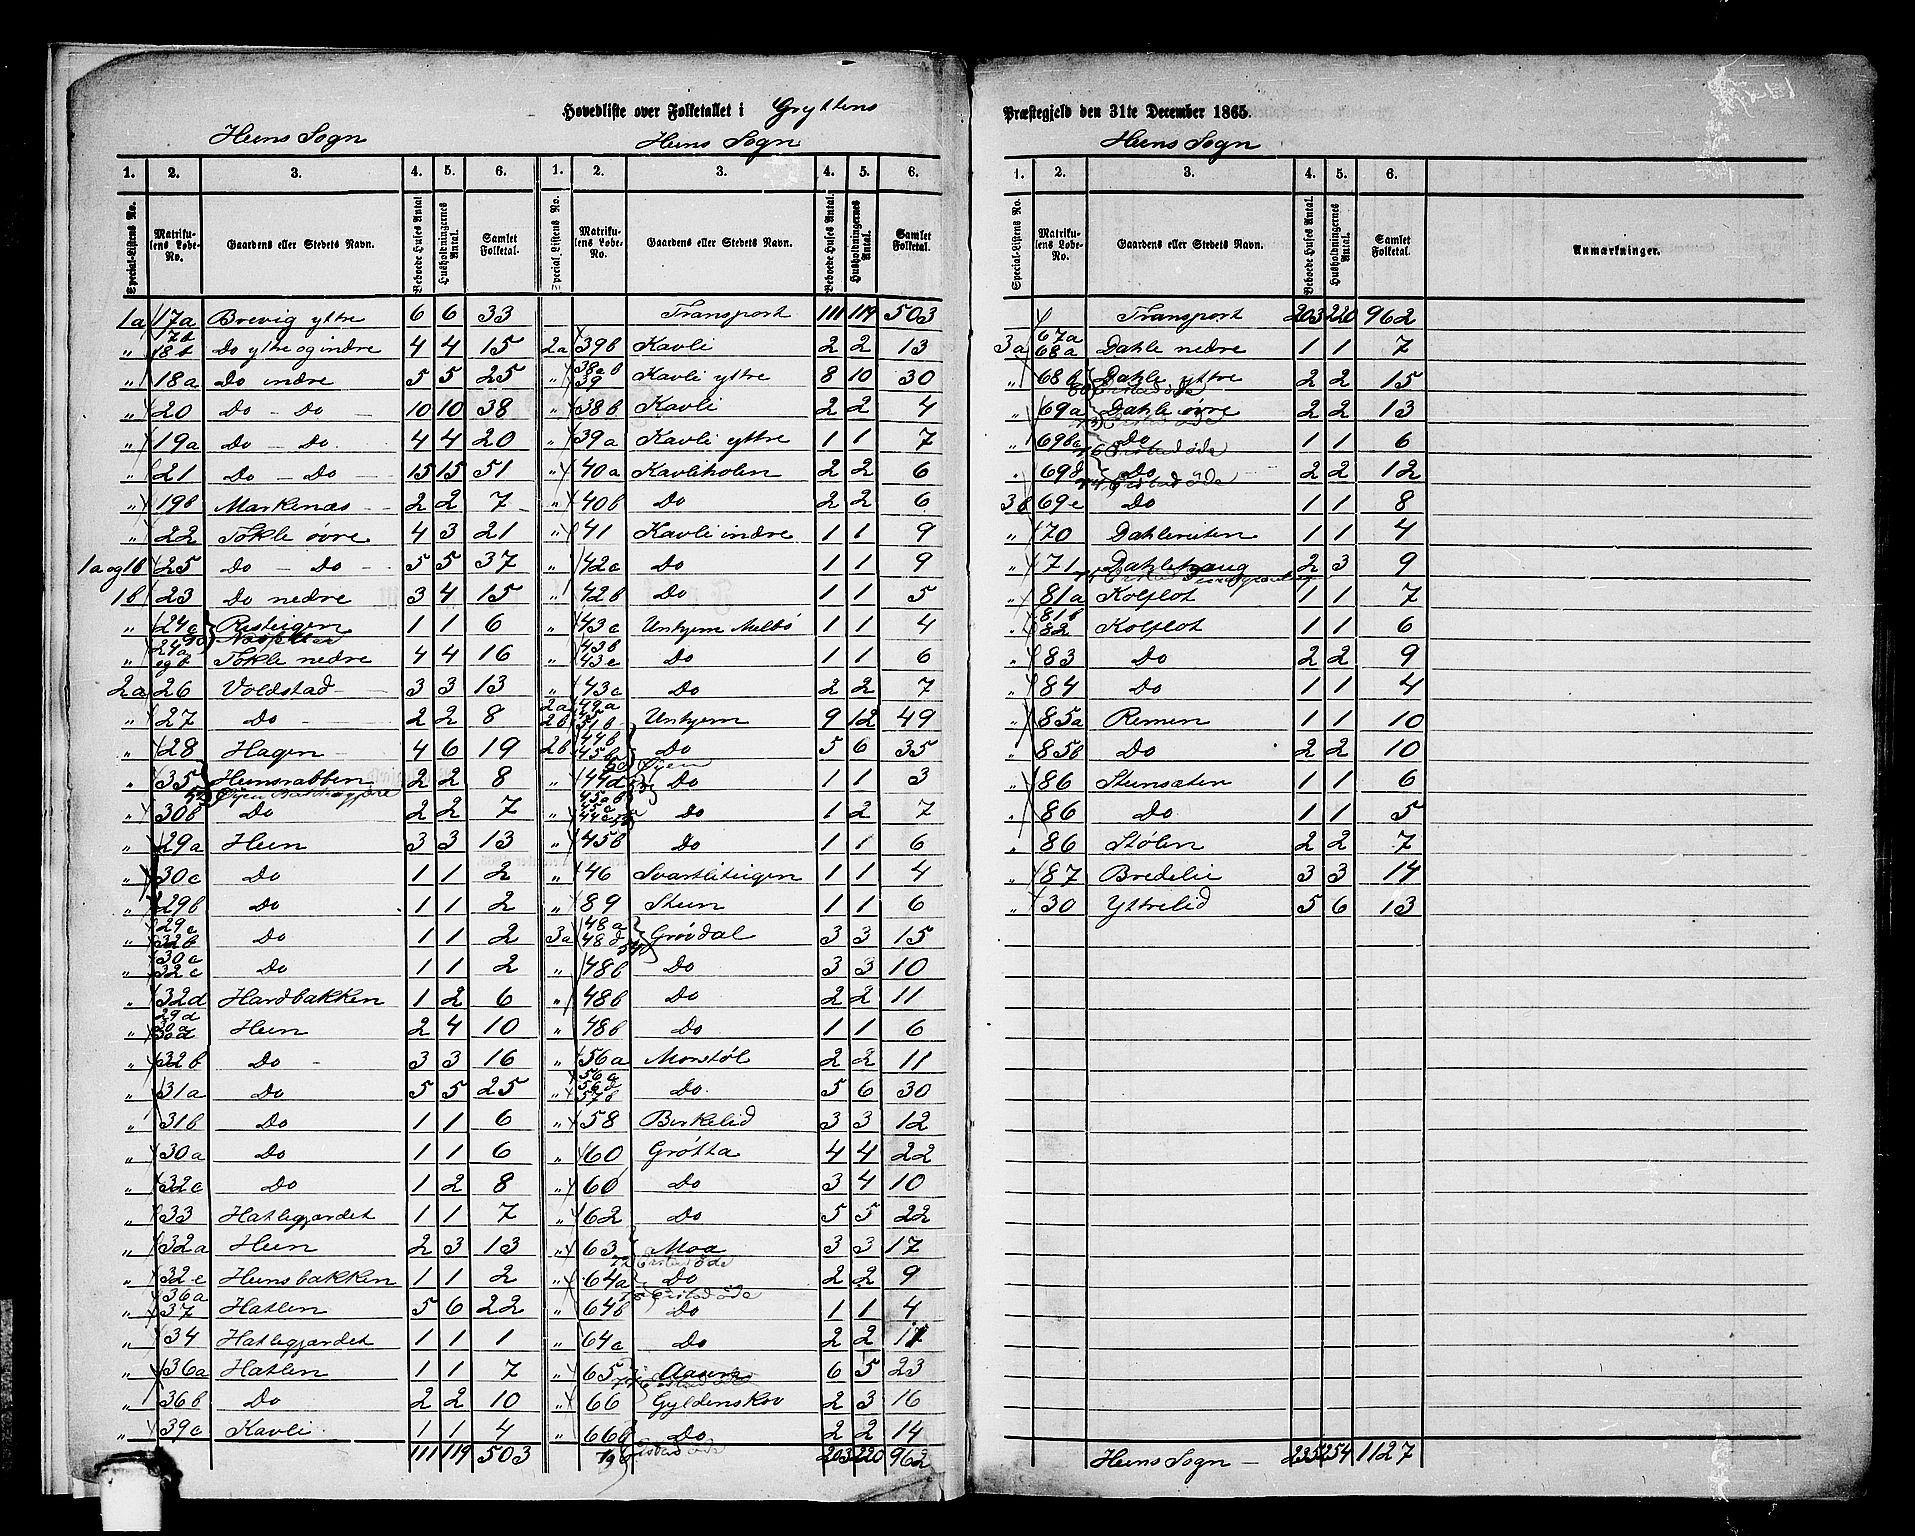 Hovedliste over Folketallet i Gryttens
Heens Sogn
Heens Sogn
1. 2. 3. 4. 5. 6. 1. 2. 3. 4. 5. 6.
Special-Listens No. Matrikulens Løbe-No. Gaardens eller Stedets Navn. Beboede Huses Antal. Husholdningernes Antal. Samlet Folketal.
1a 17a Brevig yttre 6 6 33
" 17b 18b Do yttre og indre 4 4 15
" 18a Do indre 5 5 25
" 20 Do - Do - 10 10 38
" 19a Do - Do - 4 4 20
" 21 Do - Do - 15 15 51
" 19b Markenæs 2 2 7
" 22 Tokle øvre 4 3 21
1a og 1b 25 Do - Do - 5 5 37
1b 23 Do nedre 3 4 15
" 24c Risteigen 1 1 6
" 24a og b Tokle nedre 4 4 16
2a 26 Voldstad 3 3 13
" 27 Do 2 2 8
" 28 Hagen 4 6 19
" 35 Heensnabben 2 2 8
" 30b Do 2 2 7
" 29a Heen 3 3 13
" 30c Do 1 1 2
" 29b Do 1 1 2
" 29c 32b Do 1 1 2
" 30c 32c Do 1 1 2
" 32d Hardbakken 1 2 6
" 29d 30a 30d Heen 2 4 10
" 32b Do 3 3 16
" 31a Do 5 5 25
" 31b Do 1 1 6
" 30a Do 1 1 6
" 32c Do 1 2 8
" 33 Hatlegjærdet 1 1 7
" 32a Heen 2 3 13
" 32e Heensbakken 1 1 2
" 36a 37 Hatlen 5 6 22
" 34 Hatlegjærdet 1 1 1
" 36a Hatlen 1 1 7
" 36b Do 2 2 10
" 39c Kavli 1 1 4
111 119 503
Special Listens No. Matrikulens Løbe-No. Gaardens eller Stedets Navn. Beboede Huses Antal. Husholdningernes Antal. Samlet Folketal.
Transport 111 119 503
2a 39b Kavli 2 2 13
" 38a b 39 Kavli yttre 8 10 30
" 38b Kavli 2 2 4
" 39a Kavli yttre 1 1 7
" 40a Kavliholen 2 2 6
" 40b Do 2 2 6
" 41 Kavli indre 1 1 9
" 42c Do 1 1 9
" 42b Do 1 1 5
" 43c Unhjem Melbö 1 1 4
" 43b 43e Do 1 1 6
" 43c Do 2 2 7
2a 2b 49a 51b Unhjem 9 12 49
2b 44b 45b Do 5 6 35
Øyen
" 44d Do 1 1 3
" 45a b 45c 44c Do 1 2 7
" 45b Do 1 1 6
" 46 Svartliteigen 1 1 4
" 89 Steen 1 1 6
3a 48a 48d Grövdal 3 3 15
" 48b Do 3 3 10
" 48b Do 2 2 11
" 48b Do 1 1 6
" 56a Monstøl 2 2 11
" 56a 56d 57b Do 5 6 30
" 58 Birkelid 3 3 12
" 60 Gròtta 4 4 22
" 60 Do 3 4 10
" 62 Do 5 5 22
" 63 Moa 3 3 17
" 64a Do 2 2 9
" 64b Do 1 1 4
" 64c Do 2 2 11
" 65 Aasen 6 5 23
" 66 Gyldenskov 2 3 16
" 66b Do 2 2 14
203 220 962
Præstegjeld den 31te December 1865.
Heens Sogn
1. 2. 3. 4. 5. 6.
Special-Listens No. Matrikulens Løbe-No. Gaardens eller Stedets Navn. Beboede Huses Antal. Husholdningernes Antal. Samlet Folketal. Anmærkninger.
Transport 203 220 962
3a 67a 68a Dahle nedre 1 1 7
" 68b Dahle yttre 2 2 15
" 69a Dahle øvre 2 2 13
" 69b c Do 1 1 6
" 69d Do 2 2 12
3b 69e Do 1 1 8
" 70 Dahlereiten 1 1 4
" 71 Dahlehaug 2 3 9
" 81a Kolflot 1 1 7
" 81b 82 Kolflot 1 1 6
" 83 Do 2 2 9
" 84 Do 1 1 4
" 85a Remen 1 1 10
" 85b Do 2 2 10
" 86 Stensæten 1 1 6
" 86 Do 1 1 5
" 86 Stølen 2 2 7
" 87 Bredelie 3 3 14
" 30 Yttrelid 5 6 13
Heens Sogn - 235 254 1127